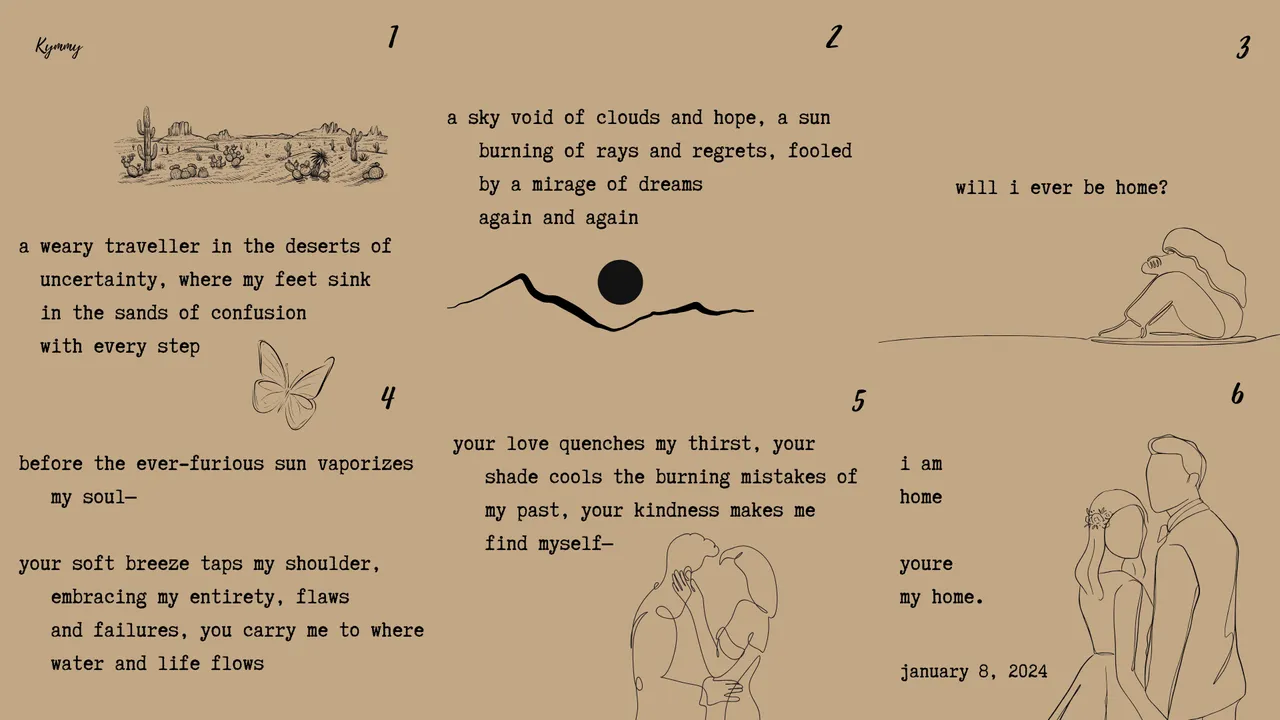 Kymmy
1
a weary traveller in the deserts of
uncertainty, where my feet sink
in the sands of confusion
with every step
2
a sky void of clouds and hope, a sun
burning of rays and regrets, fooled
by a mirage of dreams
again and again
3
will i ever be home?
4
before the ever-furious sun vaporizes
my soul—
your soft breeze taps my shoulder,
embracing my entirety, flaws
and failures, you carry me to where
water and life flows
5
your love quenches my thirst, your
shade cools the burning mistakes of
my past, your kindness makes me
find myself—
6
i am
home
youre
my home.
january 8, 2024